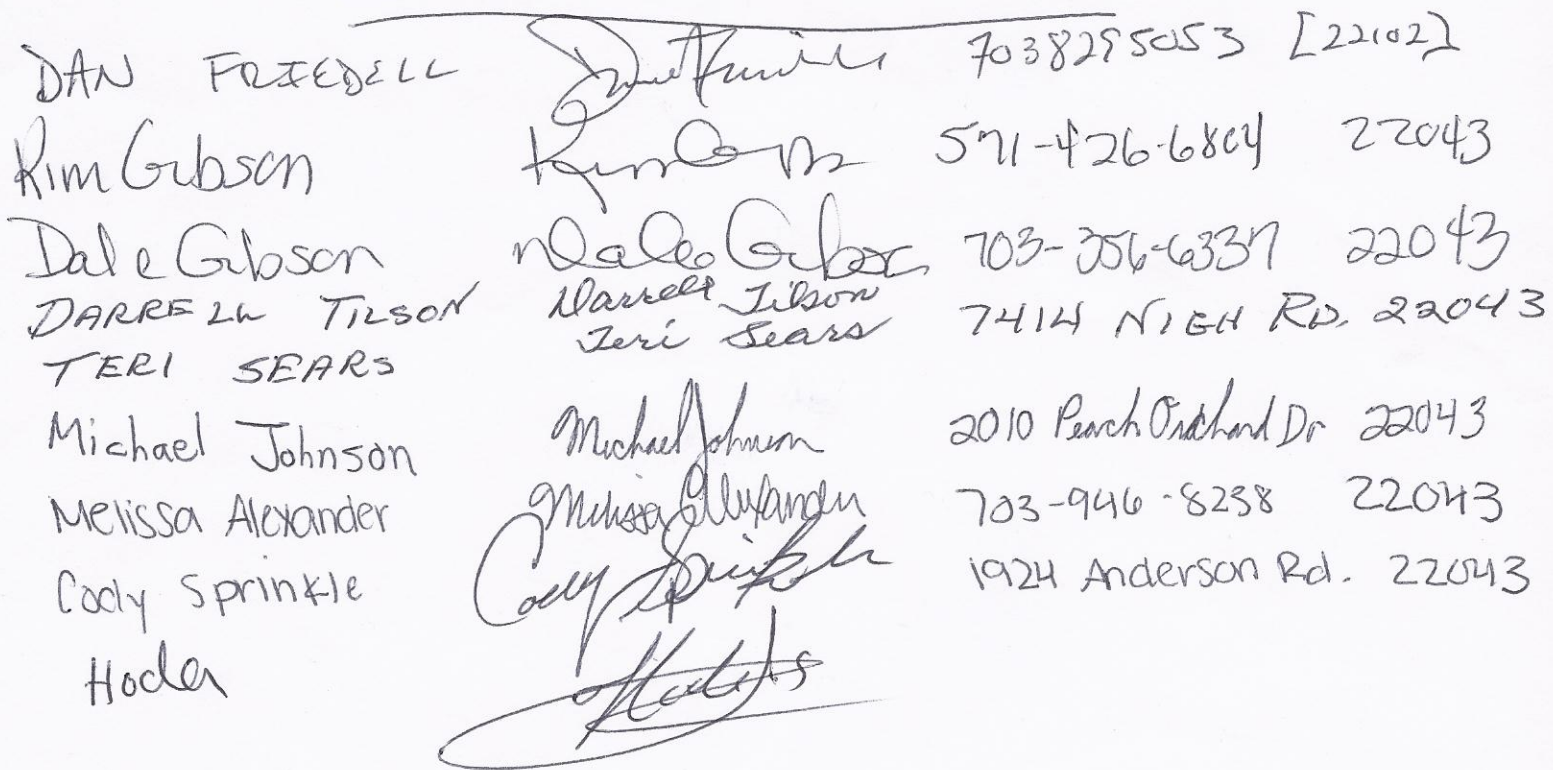 DAN FRIEDELL 7038295053 [22102]
Kim Gibson 571-426-6804 22043
Dale Gibson Dale Gibson 703-356-6337 22043
DARRELL TILSON Darrell Tilson 7414 NIGH RD. 22043
TERI SEARS Teri Sears
Michael Johnson Michael Johnson 2010 Peach Orchard Dr 22043
Melissa Alexander Melissa Alexander 703-946-8238 22043
Cody Sprinkle Cody Sprinkle 1924 Anderson Rd. 22043
Hoda